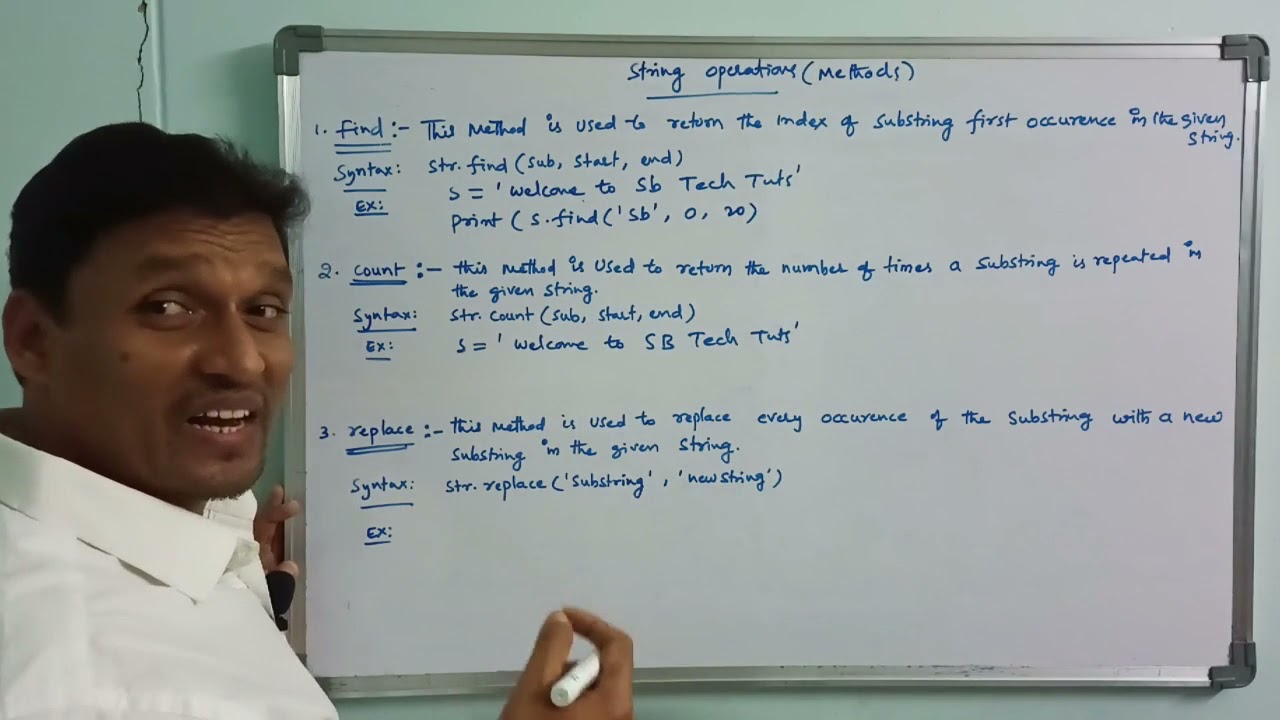 String operations (Methods)
1. find :- This method is used to return the index of substring first occurence in the given
string.
Syntax: Str.find (sub, start, end)
Ex: s = 'welcome to Sb Tech Tuts'
print ( s.find('sb', 0, 20)
2. count :- this method is used to return the number of times a substring is repeated in
the given string.
Syntax: Str. count (sub, start, end)
Ex: s = ' welcome to SB Tech Tuts'
3. replace :- this method is used to replace every occurence of the substring with a new
substring in the given string.
Syntax: Str. replace ('substring' , 'new string')
Ex: